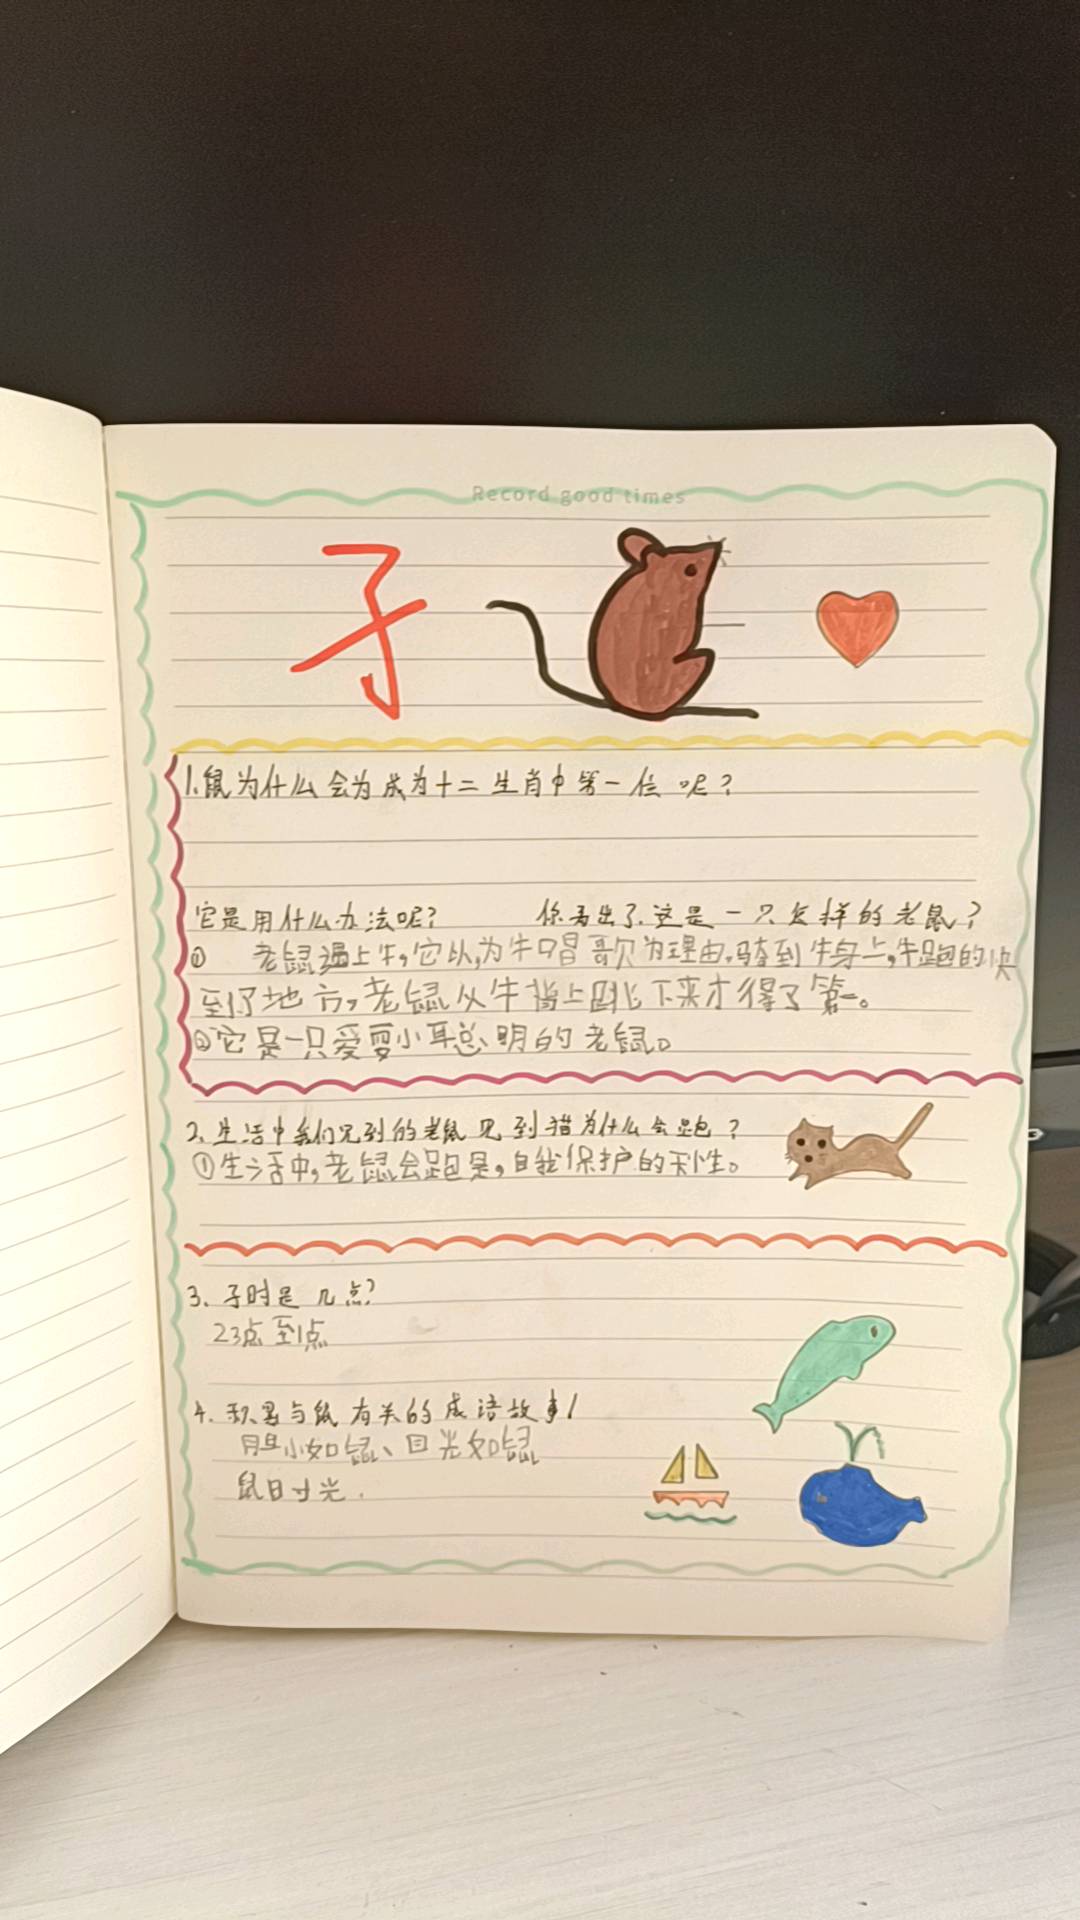 Record good times
子
1.鼠为什么会为成为十二生肖中第一位呢?
它是用什么办法呢? 你看出了这是一只怎样的老鼠?
① 老鼠遇上牛,它以为牛唱歌为理由,骑到牛身上,牛跑的快
到了地方,老鼠从牛背上跳下来才得了第一。
②它是一只爱耍小聪明的老鼠。
2、生活中我们见到的老鼠见到猫为什么会跑?
①生活中,老鼠会跑是,自我保护的天性。
3、子时是几点?
23点至1点
4、积累与鼠有关的成语故事!
胆小如鼠、目光如鼠
鼠目寸光.